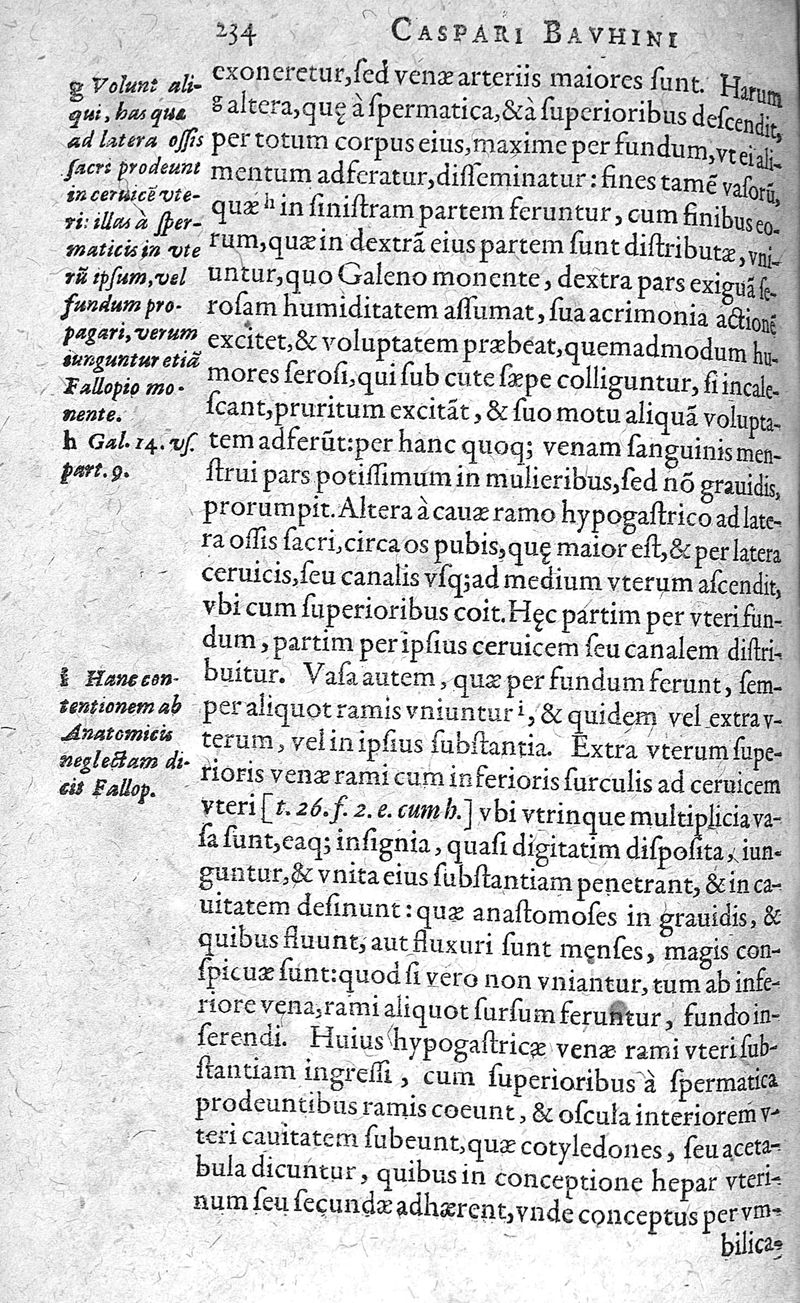 234 CASPARI BAVHINI
g Volunt ali-
qui, has quæ
ad latera oſſis
ſacri prodeunt
in ceruicẽ vte-
ri: illas à ſper-
maticis in vte
rũ ipſum, vel
fundum pro-
pagari, verum
iunguntur etiã
Fallopio mo-
nente.
h Gal. 14. vſ.
part. 9.
i Hanc con-
tentionem ab
Anatomicis
neglectam di-
cit Fallop.
exoneretur, ſed venæ arteriis maiores ſunt. Harum
g altera, quę à ſpermatica, & à ſuperioribus deſcendit,
per totum corpus eius, maxime per fundum, vt ei ali-
mentum adferatur, diſſeminatur: fines tamẽ vaſorũ,
quæ h in ſiniſtram partem feruntur, cum finibus eo-
rum, quæ in dextrã eius partem ſunt diſtributæ, vni-
untur, quo Galeno monente, dextra pars exiguã ſe-
roſam humiditatem aſſumat, ſua acrimonia actionẽ
excitet, & voluptatem præbeat, quemadmodum hu-
mores ſeroſi, qui ſub cute ſæpe colliguntur, ſi incale-
ſcant, pruritum excitãt, & ſuo motu aliquã volupta-
tem adferũt: per hanc quoq; venam ſanguinis men-
ſtrui pars potiſſimum in mulieribus, ſed nõ grauidis,
prorumpit. Altera à cauæ ramo hypogaſtrico ad late-
ra oſſis ſacri, circa os pubis, quę maior eſt, & per latera
ceruicis, ſeu canalis vſq; ad medium vterum aſcendit,
vbi cum ſuperioribus coit. Hęc partim per vteri fun-
dum, partim per ipſius ceruicem ſeu canalem diſtri-
buitur. Vaſa autem, quæ per fundum ferunt, ſem-
per aliquot ramis vniuntur i, & quidem vel extra v-
terum, vel in ipſius ſubſtantia. Extra vterum ſupe-
rioris venæ rami cum inferioris ſurculis ad ceruicem
vteri [t. 26. f. 2. e. cum h.] vbi vtrinque multiplicia va-
ſa ſunt, eaq; inſignia, quaſi digitatim diſpoſita, iun-
guntur, & vnita eius ſubſtantiam penetrant, & in ca-
uitatem deſinunt: quæ anaſtomoſes in grauidis, &
quibus fluunt, aut fluxuri ſunt menſes, magis con-
ſpicuæ ſunt: quod ſi vero non vniantur, tum ab infe-
riore vena, rami aliquot ſurſum feruntur, fundo in-
ſerendi. Huius hypogaſtricæ venæ rami vteri ſub-
ſtantiam ingreſſi, cum ſuperioribus à ſpermatica
prodeuntibus ramis coeunt, & oſcula interiorem v-
teri cauitatem ſubeunt, quæ cotyledones, ſeu aceta-
bula dicuntur, quibus in conceptione hepar vteri-
num ſeu ſecundæ adhærent, vnde conceptus per vm-
bilica-